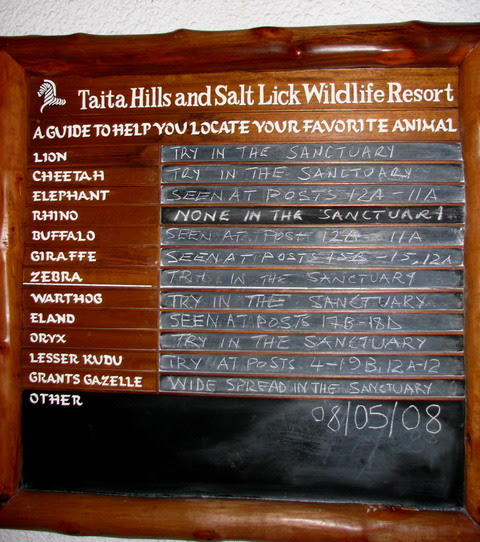 Taita Hills and Salt Lick Wildlife Resort
A GUIDE TO HELP YOU LOCATE YOUR FAVORITE ANIMAL
LION TRY IN THE SANCTUARY
CHEETAH TRY IN THE SANCTUARY
ELEPHANT SEEN AT POSTS 12A - 11A
RHINO NONE IN THE SANCTUARY
BUFFALO SEEN AT POST 12A - 11A
GIRAFFE SEEN AT POSTS 15B - 15, 12A
ZEBRA TRY IN THE SANCTUARY
WARTHOG TRY IN THE SANCTUARY
ELAND SEEN AT POSTS 17B - 18D
ORYX TRY IN THE SANCTUARY
LESSER KUDU TRY AT POSTS 4 - 19B, 12A - 12
GRANTS GAZELLE WIDE SPREAD IN THE SANCTUARY
OTHER
08/05/08